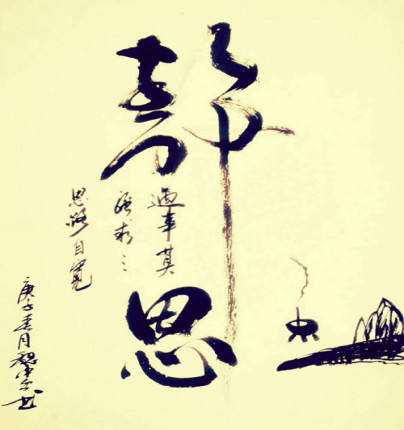 静思
遇事莫
强求
思路自宽
庚子春月